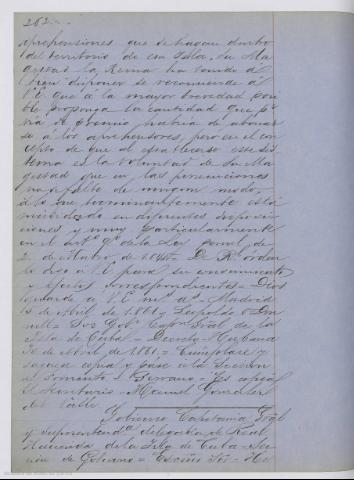 262
aprehensiones que se hagan dentro
del territorio de esa Isla, su Ma
gestad la Reina ha tenido á
bien disponer se recomiende á
V.E. que á la mayor brevedad posi
ble proponga la cantidad que p.r
via de premio habria de abonar
se á los aprehensores, pero en el con
cepto de que al establecerse este sis
tema es la voluntad de Su Ma
gestad que en las persecuciones
no se falte de ningun modo,
á lo que terminantemente está
prevenido en diferentes disposi
ciones y muy particularmente
en el art.o 9.o de la Ley penal de
2 de Marzo de 1845= De R.l orden
lo digo á V.E. para su conocimiento
y efectos correspondientes= Dios
guarde á V.E. m.s a.s= Madrid
de Abril de 1861= Leopoldo O'Don
nell= Sor Gob.r Cap.n Gral de la
Isla de Cuba= Decreto= Habana
30 de Abril de 1861= Cumplase y
saquese copia y pase á la Seccion
de Fomento= Serrano= Es copia=
El Secretario= Manuel Gonzalez
del Valle
Gobierno Capitania Gral
y Superintend.a delegada de Real
Hacienda de la Isla de Cuba= Sec
cion de Gobierno= Escmo Sor= He